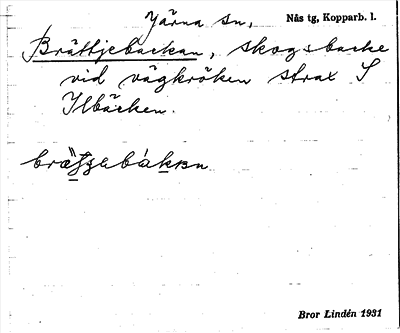 Järna sn, Nås tg, Kopparb. l.
Brättjebackan, skogsbacke
vid vägkröken strax S
Ilbäcken.
Bror Lindén 1931